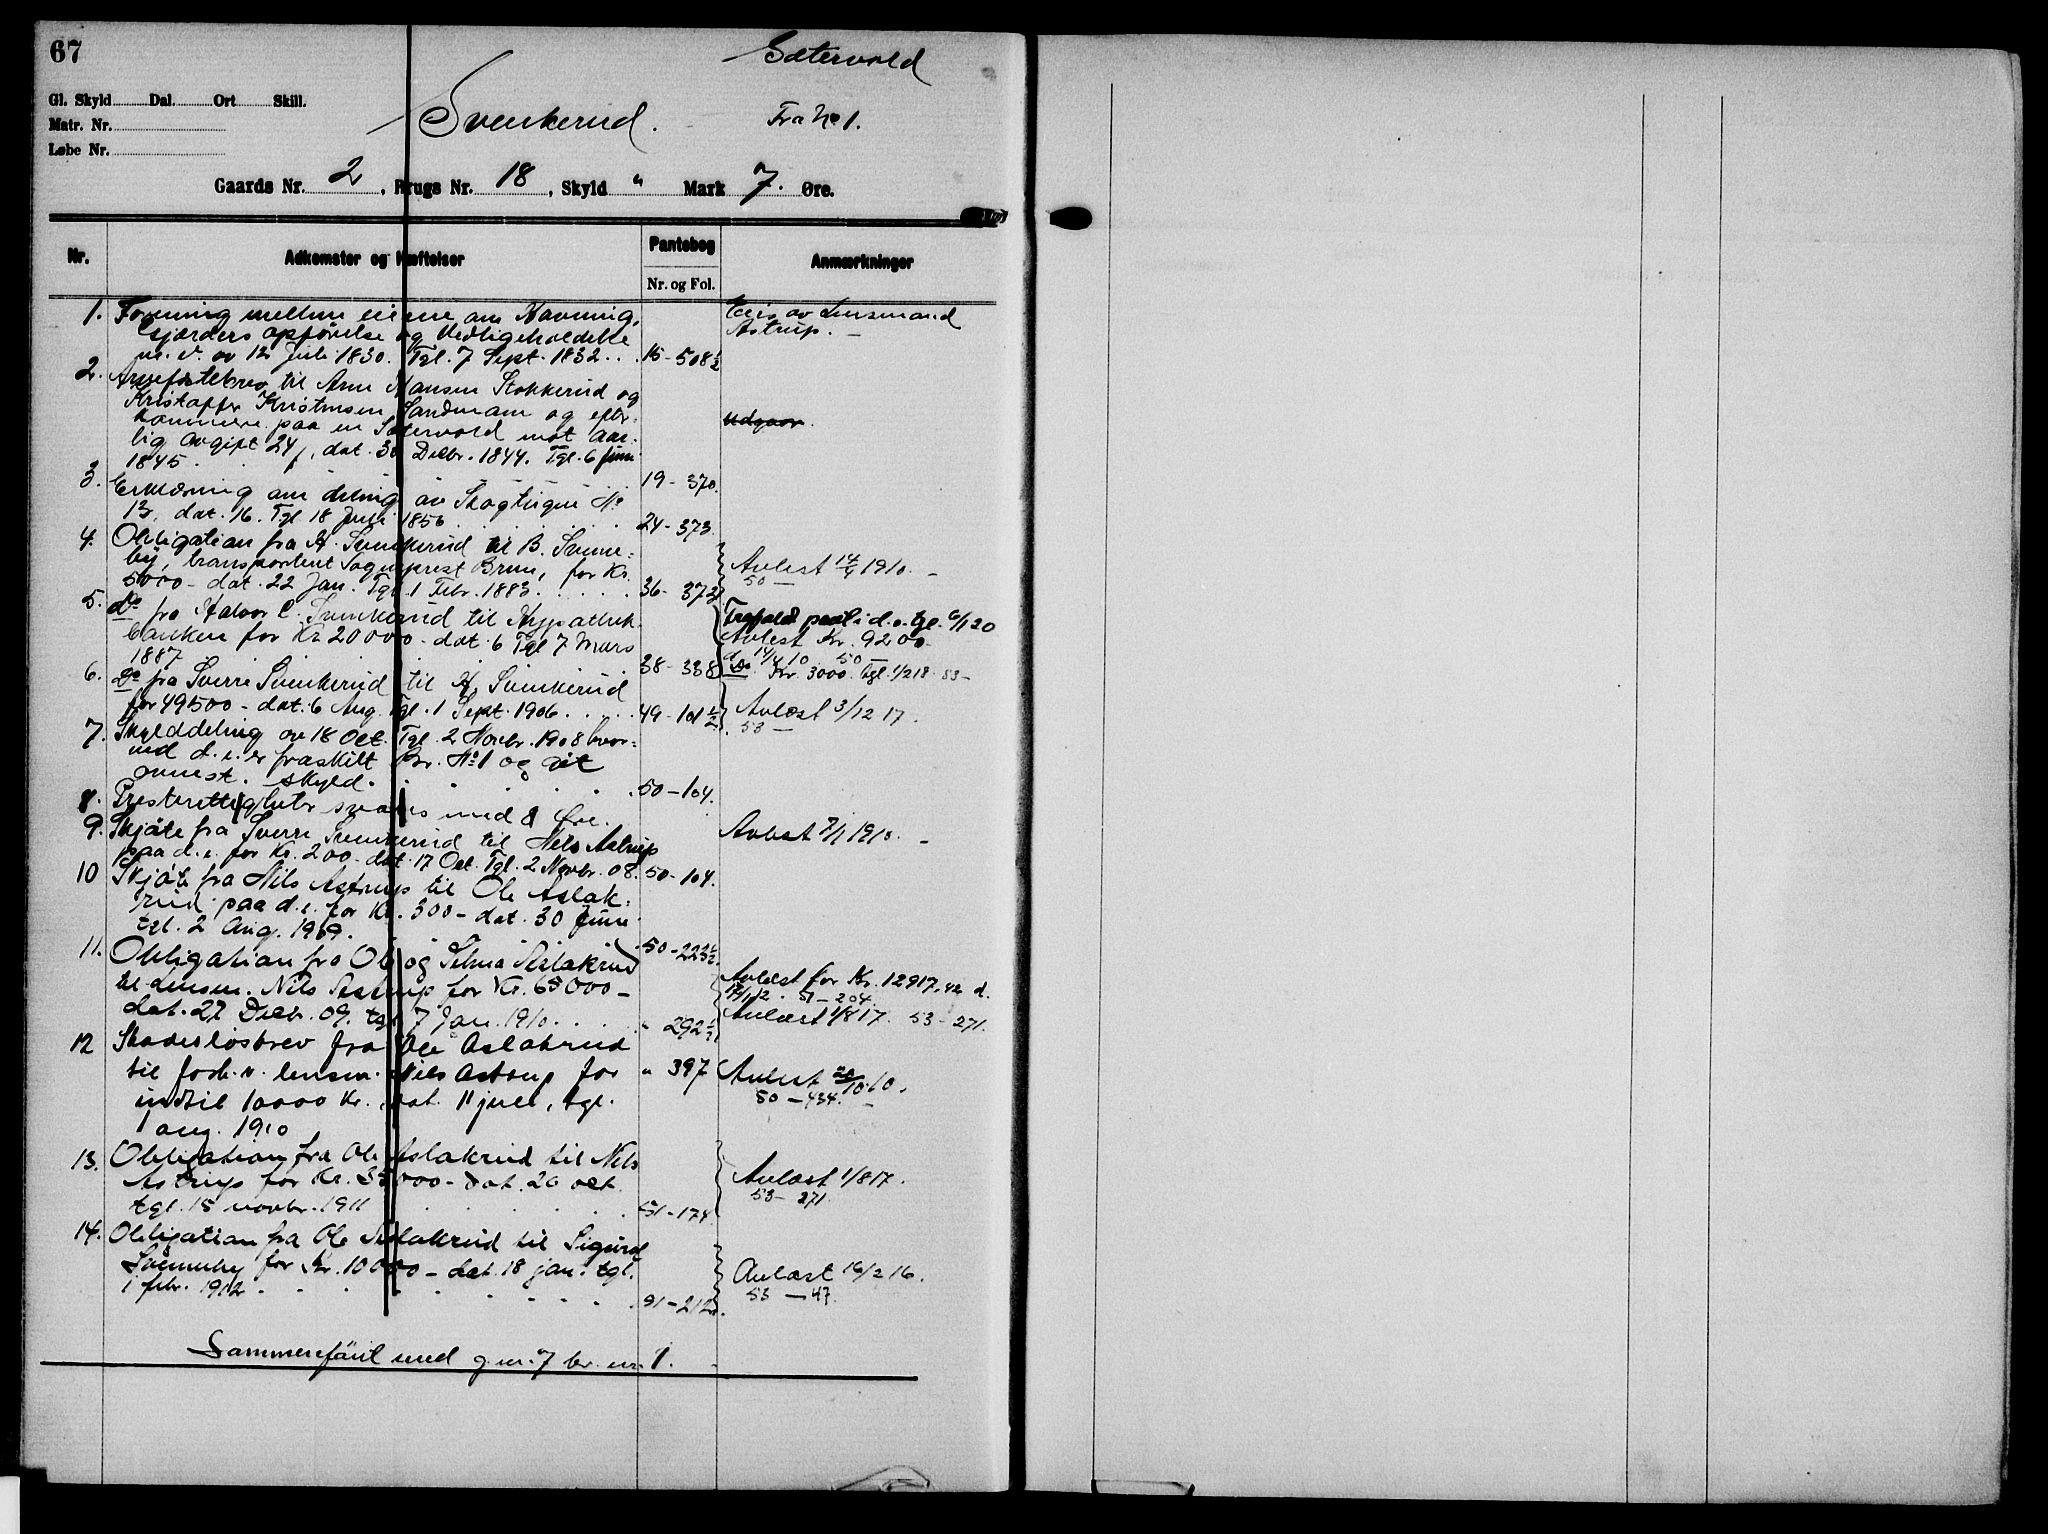 67
Sætervold
Gl. Skyld Dal. Ort Skill.
Svenkerud. Fra No 1.
Matr. Nr.
Løbe Nr.
Gaards Nr. 2, Brugs Nr. 18, Skyld " Mark 7. Øre.
Nr. Adkomster og Hæftelser Pantebog Anmærkninger
Nr. og Fol.
1. Forening mellem eierne om Havning,
Gjærders opførelse og Vedligeholdelse
m. v. av 12 Juli 1830. Tgl. 7 Sept. 1832 .. 15-508½
Eies av Lensmand
Astrup. —
2. Arvefæstebrev til Arne Hansen Stokkerud og
Kristoffer Kristensen Sandmoen og efter-
kommere paa en Sætervold mot aar-
lig Avgift 24, dat. 30 Decbr. 1844. Tgl. 6 Juni
1845 . . 19-370.
Udgaar.
3. Erklæring om deling av Skogteigen No
13, dat. 16. Tgl 18 Juli 1856 . . . . 24-373.
4. Obligation fra H. Svenkerud til B. Svenne-
by, transporteret Sogneprest Brun, for Kr.
5000- dat. 22 Jan. Tgl. 1 Febr. 1883 . . . . 36-373
Avlest 14/4 1910. —
50 —
5. do fra Halvor C. Svenkerud til Hypothek-
banken for Kr 20000- dat. 6 Tgl 7 Mars
1887 38-338
Frafaldt pant i d. e. tgl. 6/1 20
Avlest Kr. 9200-
14/4 10 50 —
Do Kr. 3000. Tgl. 1/2 18. 53-
6. do fra Sverre Svenkerud til H. Svenkerud
for 49500- dat. 6 Aug. Tgl. 1 Sept. 1906 . . . 49-101½
Avlæst 3/12 17.
53 —
7. Skylddeling av 18 Oct. Tgl. 2 Novbr. 1908 hvor-
ved d. e. er fraskilt Br. No 1 og dit
anmest. skyld. . . . . . 50-104.
8. Presterettigheter svares med 8 Øre.
9. Skjøte fra Sverre Svenkerud til Nils Astrup
paa d. e. for Kr. 200- dat. 17 Oct. Tgl. 2 Novbr. 08. 50-104.
Avlest 7/1 1910. —
10 Skjøte fra Nils Astrup til Ole Aslak-
rud paa d. e. for Kr. 300- dat. 30 Juni
tgl. 2 Aug. 1909. 50-223½
11. Obligation fra Ole og Selma Aslakrud
til lensm. Nils Astrup for Kr. 65000-
dat. 27 Decbr. 09. tgl 7 Jan. 1910 . . . " 292½
Avlæst for Kr. 12917,42 d.
51-204.
Avlæst 1/8 17. 53-271.
12 Skadesløsbrev fra Ole Aslakrud
til forh.v. lensm. Nils Astrup for " 397
indtil 10000 Kr., dat. 11 juli, tgl.
1 aug. 1910
Avlest 20/10 10.
50-434. —
13. Obligation fra Ole Aslakrud til Nils
Astrup for Kr. 35000- dat. 20 oct.
tgl. 15 novbr. 1911 . . . . . 51-174.
Avlæst 1/8 17.
53-271.
14. Obligation fra Ole Aslakrud til Sigurd
Svenneby for Kr. 10000- dat. 18 jan. tgl.
1 febr. 1912 . . . . . . 51-212.
Avlæst 16/2 16.
53-47.
Sammenføiet med g.nr. 7 br. nr. 1.